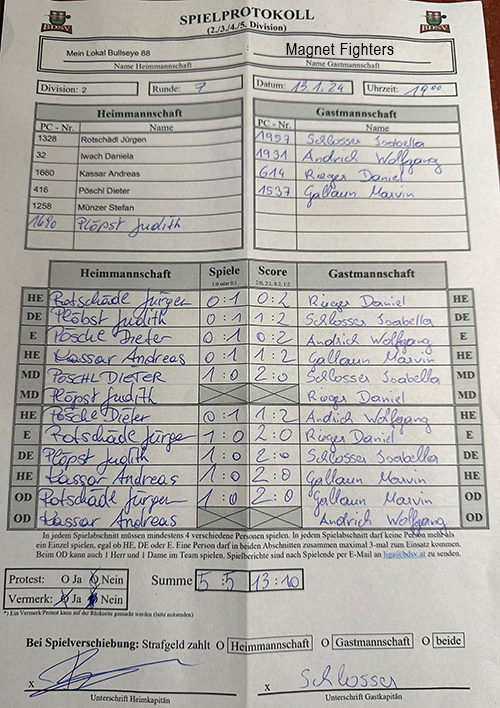 SPIELPROTOKOLL
(2./3./4./5. Division)
BDSV
BDSV
Mein Lokal Bullseye 88
Magnet Fighters
Name Heimmannschaft
Name Gastmannschaft
Division: 2 Runde: 7 Datum: 13.1.24 Uhrzeit: 1900
Heimmannschaft
PC - Nr. Name
1328 Rotschädl Jürgen
32 Iwach Daniela
1660 Kassar Andreas
416 Pöschl Dieter
1258 Münzer Stefan
1690 Plöpst Judith
Gastmannschaft
PC - Nr. Name
1957 Schlosser Isabella
1931 Andrich Wolfgang
614 Rieger Daniel
1537 Gallaun Marvin
Heimmannschaft Spiele Score Gastmannschaft
1:0 oder 0:1 2:0, 2:1, 0:2, 1:2
HE Rotschädl Jürgen 0:1 0:2 Rieger Daniel HE
DE Plöbst Judith 0:1 1:2 Schlosser Isabella DE
E Pöschl Dieter 0:1 0:2 Andrich Wolfgang E
HE Kassar Andreas 0:1 1:2 Gallaun Marvin HE
MD PÖSCHL DIETER 1:0 2:0 Schlosser Isabella MD
MD Plöpst Judith Rieger Daniel MD
HE Pöschl Dieter 0:1 1:2 Andrich Wolfgang HE
E Rotschädl Jürgen 1:0 2:0 Rieger Daniel E
DE Plöpst Judith 1:0 2:0 Schlosser Isabella DE
HE Kassar Andreas 1:0 2:0 Gallaun Marvin HE
OD Rotschädl Jürgen 1:0 2:0 Gallaun Marvin OD
OD Kassar Andreas Andrich Wolfgang OD
In jedem Spielabschnitt müssen mindestens 4 verschiedene Personen spielen. In jedem Spielabschnitt darf keine Person mehr als
ein Einzel spielen, egal ob HE, DE oder E. Eine Person darf in beiden Abschnitten zusammen maximal 3-mal zum Einsatz kommen.
Beim OD kann auch 1 Herr und 1 Dame im Team spielen. Spielberichte sind nach Spielende per E-Mail an liga@bdsv.at zu senden.
Protest: O Ja O Nein Summe 5:5 13:10
Vermerk: O Ja O Nein
*) Ein Vermerk/Protest kann auf der Rückseite gemacht werden (bitte mitsenden)
Bei Spielverschiebung: Strafgeld zahlt O Heimmannschaft O Gastmannschaft O beide
x
x Schlosser
Unterschrift Heimkapitän
Unterschrift Gastkapitän